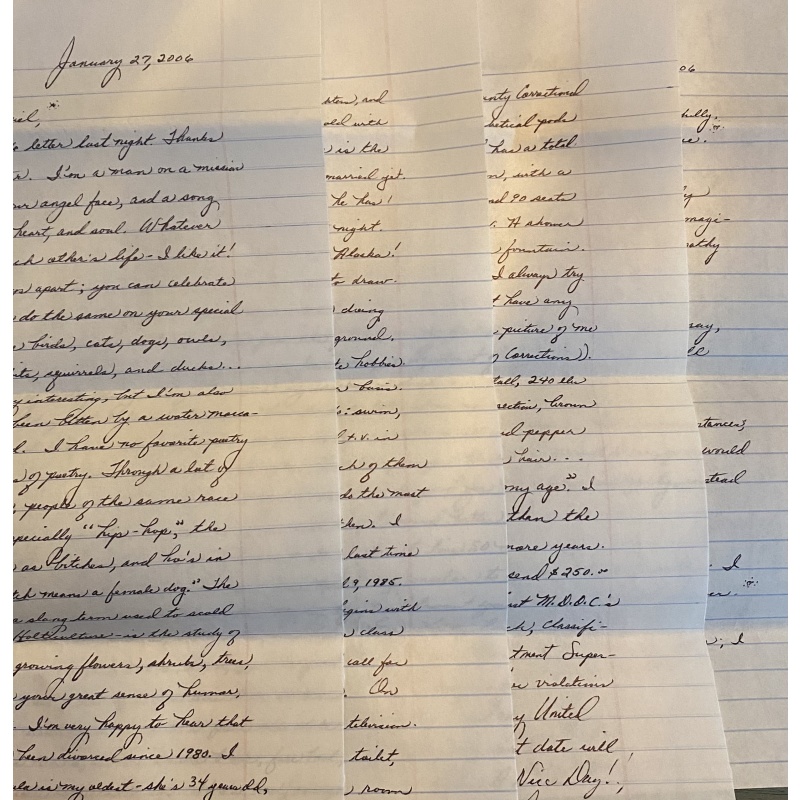 January 27, 2006
letter last night. Thanks
I'm a man on a mission
angel face, and a song
heart, and soul. Whatever
other's life - I like it!
apart; you can celebrate
do the same on your special
birds, cats, dogs, owls,
squirrels, and ducks...
interesting, but I'm also
been bitten by a water mocca-
I have no favorite poetry
of poetry. Through a lot of
people of the same race
especially "hip-hop," the
as bitches, and ho's in
means a female dog." The
slang term used to scold
Holticulture - is the study of
growing flowers, shrubs, trees,
your great sense of humor,
I'm very happy to hear that
been divorced since 1980. I
is my oldest - she's 34 years old,
and
old with
is the
married yet.
he has!
night.
Alaska!
to draw.
diving
ground.
hobbies
basis.
swim,
t.v. in
of them
do the most
I
last time
9, 1985.
begins with
class
call for
On
television.
toilet,
room
Correctional
pods
has a total
with a
90 seats
A shower
fountain.
I always try
have any
picture of me
Corrections)).
tall, 240 lbs
brown
pepper
hair...
my age." I
than the
more years.
send $250.00
M.D.O.C.'s
Classifi-
Super-
violations
United
date will
Nice Day!!
06
magi-
say,
would
I
I